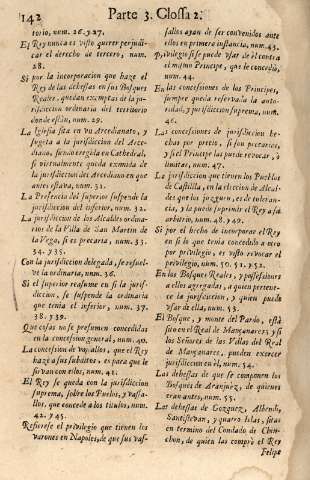 142 Parte 3. Glossa 2.
torio, num. 26. y 27.
El Rey nunca es visto querer perjudi-
car el derecho de tercero, num.
28.
Si por la incorporacion que haze el
Rey de las dehessas en sus Bosques
Reales, quedan exemptas de la ju-
risdiccion ordinaria del territorio
donde estàn, num. 29.
La Iglesia sita en vn Arcedianato, y
sugeta à la jurisdiccion del Arce-
diano, siendo eregida en Cathedral,
si virtualmente queda exmida de
la jurisdiccion del Arcediano en que
antes estava, num. 31.
La Presencia del superior suspende la
jurisdiccion del inferior, num. 32.
La jurisdiccion de los Alcaldes ordina-
rios de la Villa de San Martin de
la Vega, si es precaria, num. 33.
34. y 35.
Con la jurisdiccion delegada, se resuel-
ve la ordinaria, num. 36.
Si el superior reasume en sì la juris-
diccion, se suspende la ordinaria
que tenia el inferior, num. 37.
38. y 39.
Que cosas no se presumen concedidas
en la concession general, num. 40.
La concession de vassallos, que el Rey
haze à sus subditos, es para que le
sirvan con ellos, num. 41.
El Rey se queda con la jurisdiccion
suprema, sobre los Pueblos, y vassa-
llos, que concede à los titulos, num.
42. y 45.
Refierese el privilegio que tienen los
varones en Napoles, de que sus vas-
sallos ayan de ser convenidos ante
ellos en primera instancia, num. 43.
Privilegio si se puede vsar de èl contra
el mismo Principe, que le concediò,
num. 44.
En las concessiones de los Principes,
siempre queda reservada la auto-
ridad, y jurisdiccion suprema, num.
46.
Las concessiones de jurisdiccion he-
chas por precio, si son precarias,
y si el Principe las puede revocar, ò
limitar, num. 47.
La jurisdiccion que tienen los Pueblos
de Castilla, en la eleccion de Alcal-
des que los juzguen, es de toleran-
cia, y la puede suprimir el Rey à su
arbitrio, num. 48. y 49.
Si por el hecho de incorporar el Rey
en sì lo que tenia concedido à otro
por privilegio, es visto revocar el
privilegio, num. 50. 51. y 52.
En los Bosques Reales, y possessiones
à ellos agregadas, à quien pertene-
ce la jurisdiccion, y quien puede
vsar de ella, num. 53.
El Bosque, y monte del Pardo, està
sito en el Real de Mançanares, y si
los Señores de las Villas del Real
de Mançanares, pueden exercer
jurisdiccion en èl, num. 54.
Las dehessas de que se componen los
Bosques de Aranjuez, de quienes
eran antes, num. 55.
Las dehessas de Gozquez, Alhendi,
Santistevan, y quatro Islas, sitas
en termino del Condado de Chin-
chon, de quien las comprò el Rey
Felipe